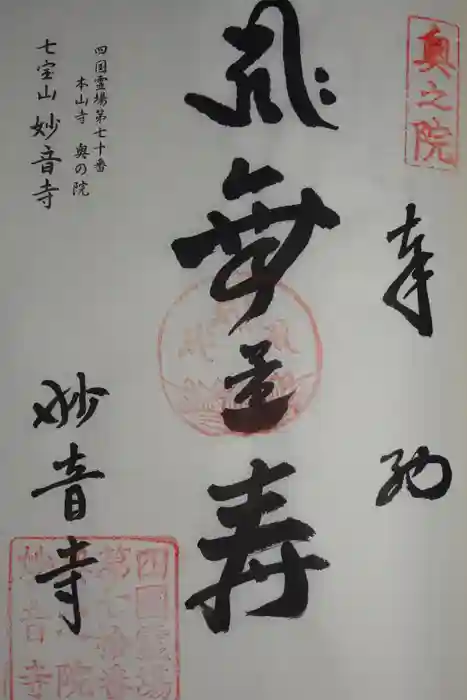 奥之院
奉納
無量寿
四国霊場第七十番
本山寺 奥の院
七宝山 妙音寺
妙音寺
四国霊場
第七十番
奥之院
妙音寺